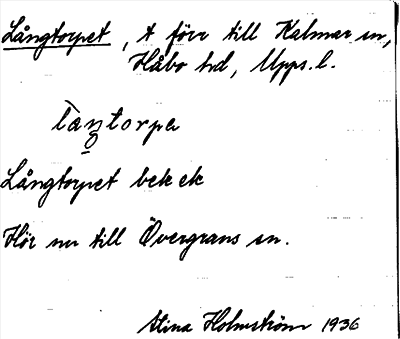 Långtorpet, t förr till Kalmar sn,
Håbo hd, Upps. l.
làŋtorpə
Långtorpet bek ek
Hör nu till Övergrans sn.
Stina Holmström 1936